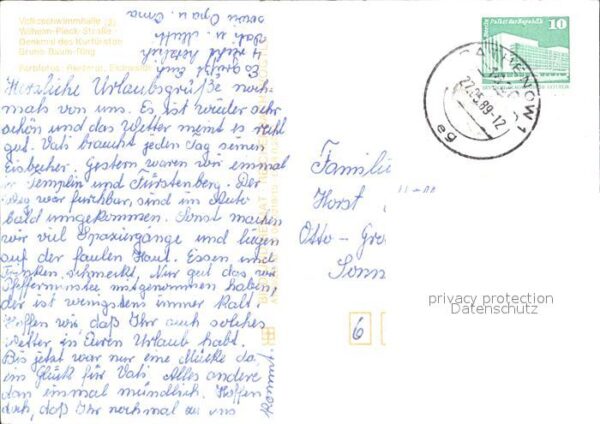 Volksschwimmhalle (2)
Wilhelm-Pieck-Straße
Denkmal des Kurfürsten
Bruno-Baum-Ring
Herzliche Urlaubsgrüße noch-
mals von uns. Es ist wieder sehr
schön und das Wetter meint es recht
gut. Vati braucht jeden Tag seinen
Eisbecher. Gestern waren wir einmal
in Templin und Fürstenberg. Der
Weg war furchbar, sind im Auto
bald umgekommen. Sonst machen
wir viel Spaziergänge und liegen
auf der faulen Haut. Essen und
Trinken schmeckt. Nur gut das wir
Pfefferminztee mitgenommen haben,
der ist wenigstens immer kalt.
Hoffen wir, daß Ihr auch solches
Wetter in Euren Urlaub habt.
Bis jetzt war nur eine Mücke da,
ein Glück für Vati. Alles andere
dan einmal mündlich. Hoffen
doch, daß Ihr nochmal zu uns
kommt.
Es grüßt Euch
recht herzlich
Vati u. Mutti
sowie Opa u. Oma
Palast der Republik
10
RATHENOW 1
27.05.89-12
eg
Familie
Horst
Otto-Gro
Sonn
6
privacy protection
Datenschutz